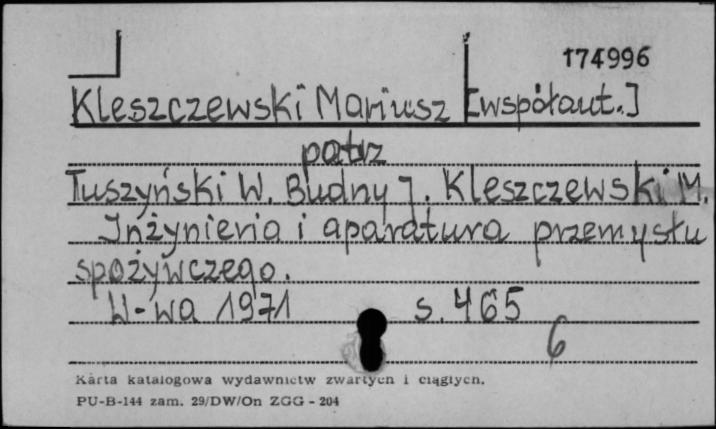 174996
Kleszczewski Mariusz [współaut.]
patrz
Tuszyński W. Budny J. Kleszczewski M.
Inżynieria i aparatura przemysłu
spożywczego.
W-wa 1971 s. 465
6
Karta katalogowa wydawnictw zwartych i ciągłych.
PU-B-144 zam. 29/DW/On ZGG - 204